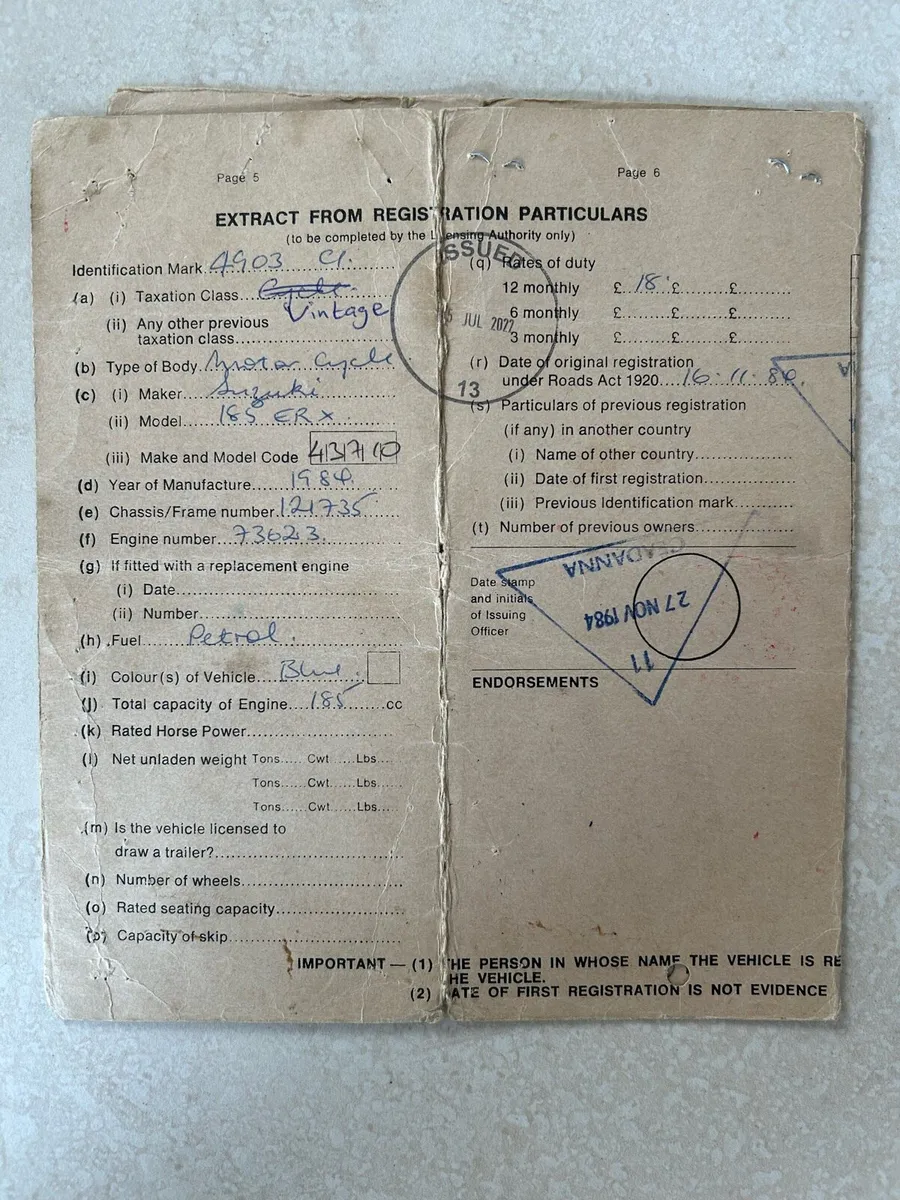 Page 5
EXTRACT FROM REGISTRATION PARTICULARS
(to be completed by the Licensing Authority only)
Identification Mark 4903 CI.
(a) (i) Taxation Class Cycle.
Vintage
(ii) Any other previous
taxation class
(b) Type of Body Motor Cycle.
(c) (i) Maker Suzuki
(ii) Model 185 ERX
(iii) Make and Model Code
(d) Year of Manufacture 1984.
(e) Chassis/Frame number 121735
(f) Engine number 73623.
(g) If fitted with a replacement engine
(i) Date
(ii) Number
(h) Fuel Petrol.
(i) Colour(s) of Vehicle Blue
(j) Total capacity of Engine 185 cc
(k) Rated Horse Power
(l) Net unladen weight Tons Cwt Lbs
Tons Cwt Lbs
Tons Cwt Lbs
(m) Is the vehicle licensed to
draw a trailer?
(n) Number of wheels
(o) Rated seating capacity
(p) Capacity of skip
Page 6
ISSUED
JUL 2022
13
(q) Rates of duty
12 monthly £ 18 £ £
6 monthly £ £ £
3 monthly £ £ £
(r) Date of original registration
under Roads Act 1920 16.11.84.
(s) Particulars of previous registration
(if any) in another country
(i) Name of other country
(ii) Date of first registration
(iii) Previous Identification mark
(t) Number of previous owners
Date stamp
and initials
of Issuing
Officer
CEADANNA
27 NOV 1984
11
ENDORSEMENTS
IMPORTANT — (1) THE PERSON IN WHOSE NAME THE VEHICLE IS RE
HE VEHICLE.
(2) ATE OF FIRST REGISTRATION IS NOT EVIDENCE